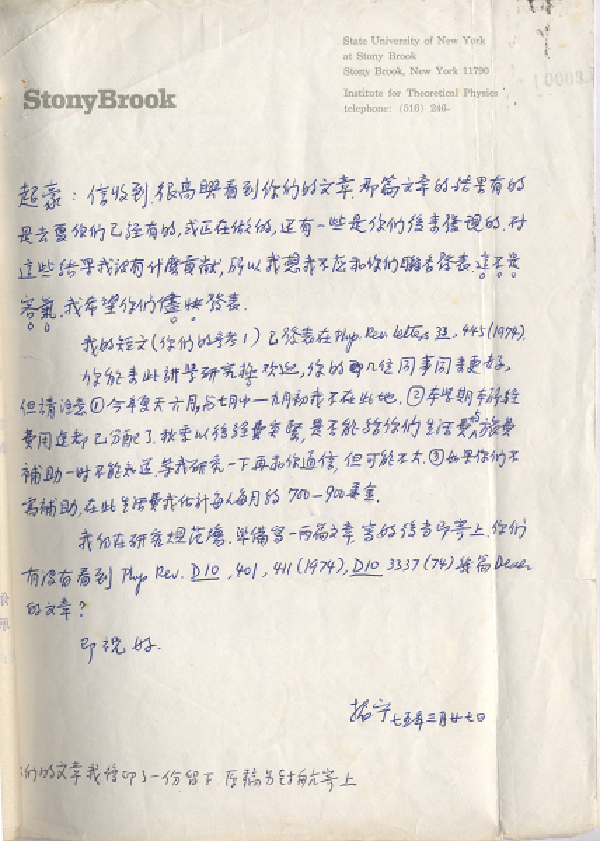 State University of New York
at Stony Brook
Stony Brook, New York 11790
StonyBrook
Institute for Theoretical Physics
telephone: (516) 246-
起豪：信收到,很高興看到你们的文章.那篇文章的结果有的
是去夏你们已经有的,或正在做的,还有一些是你们後来發現的.对
這些结果我没有什麽貢献,所以我想我不应和你们聯名發表.這不是
客氣.我希望你们儘快發表.
我的短文(你们的参考1)已發表在Phys. Rev. Letters 33, 445 (1974).
你能来此講學研究極欢迎,你的那几位同事同来更好,
但請注意①今年夏天六月与七月中—九月初我不在此地.②本學期本所经
費用途都已分配了.秋季以後经費
補助一时不能知道.等我研究一下再和你通信,但可能不大.③如果你们不
需補助,在此生活費我估計每人每月約700-900美金.
我们在研究規范場.準備写一兩篇文章.寫好後當即寄上.你们
有没有看到 Phys. Rev. D10, 401, 411 (1974), D10 3337 (74) 幾篇Dean
的文章？
即祝 好.
振宁 七五年三月廿七日
你们的文章我複印了一份留下.原稿另封航寄上